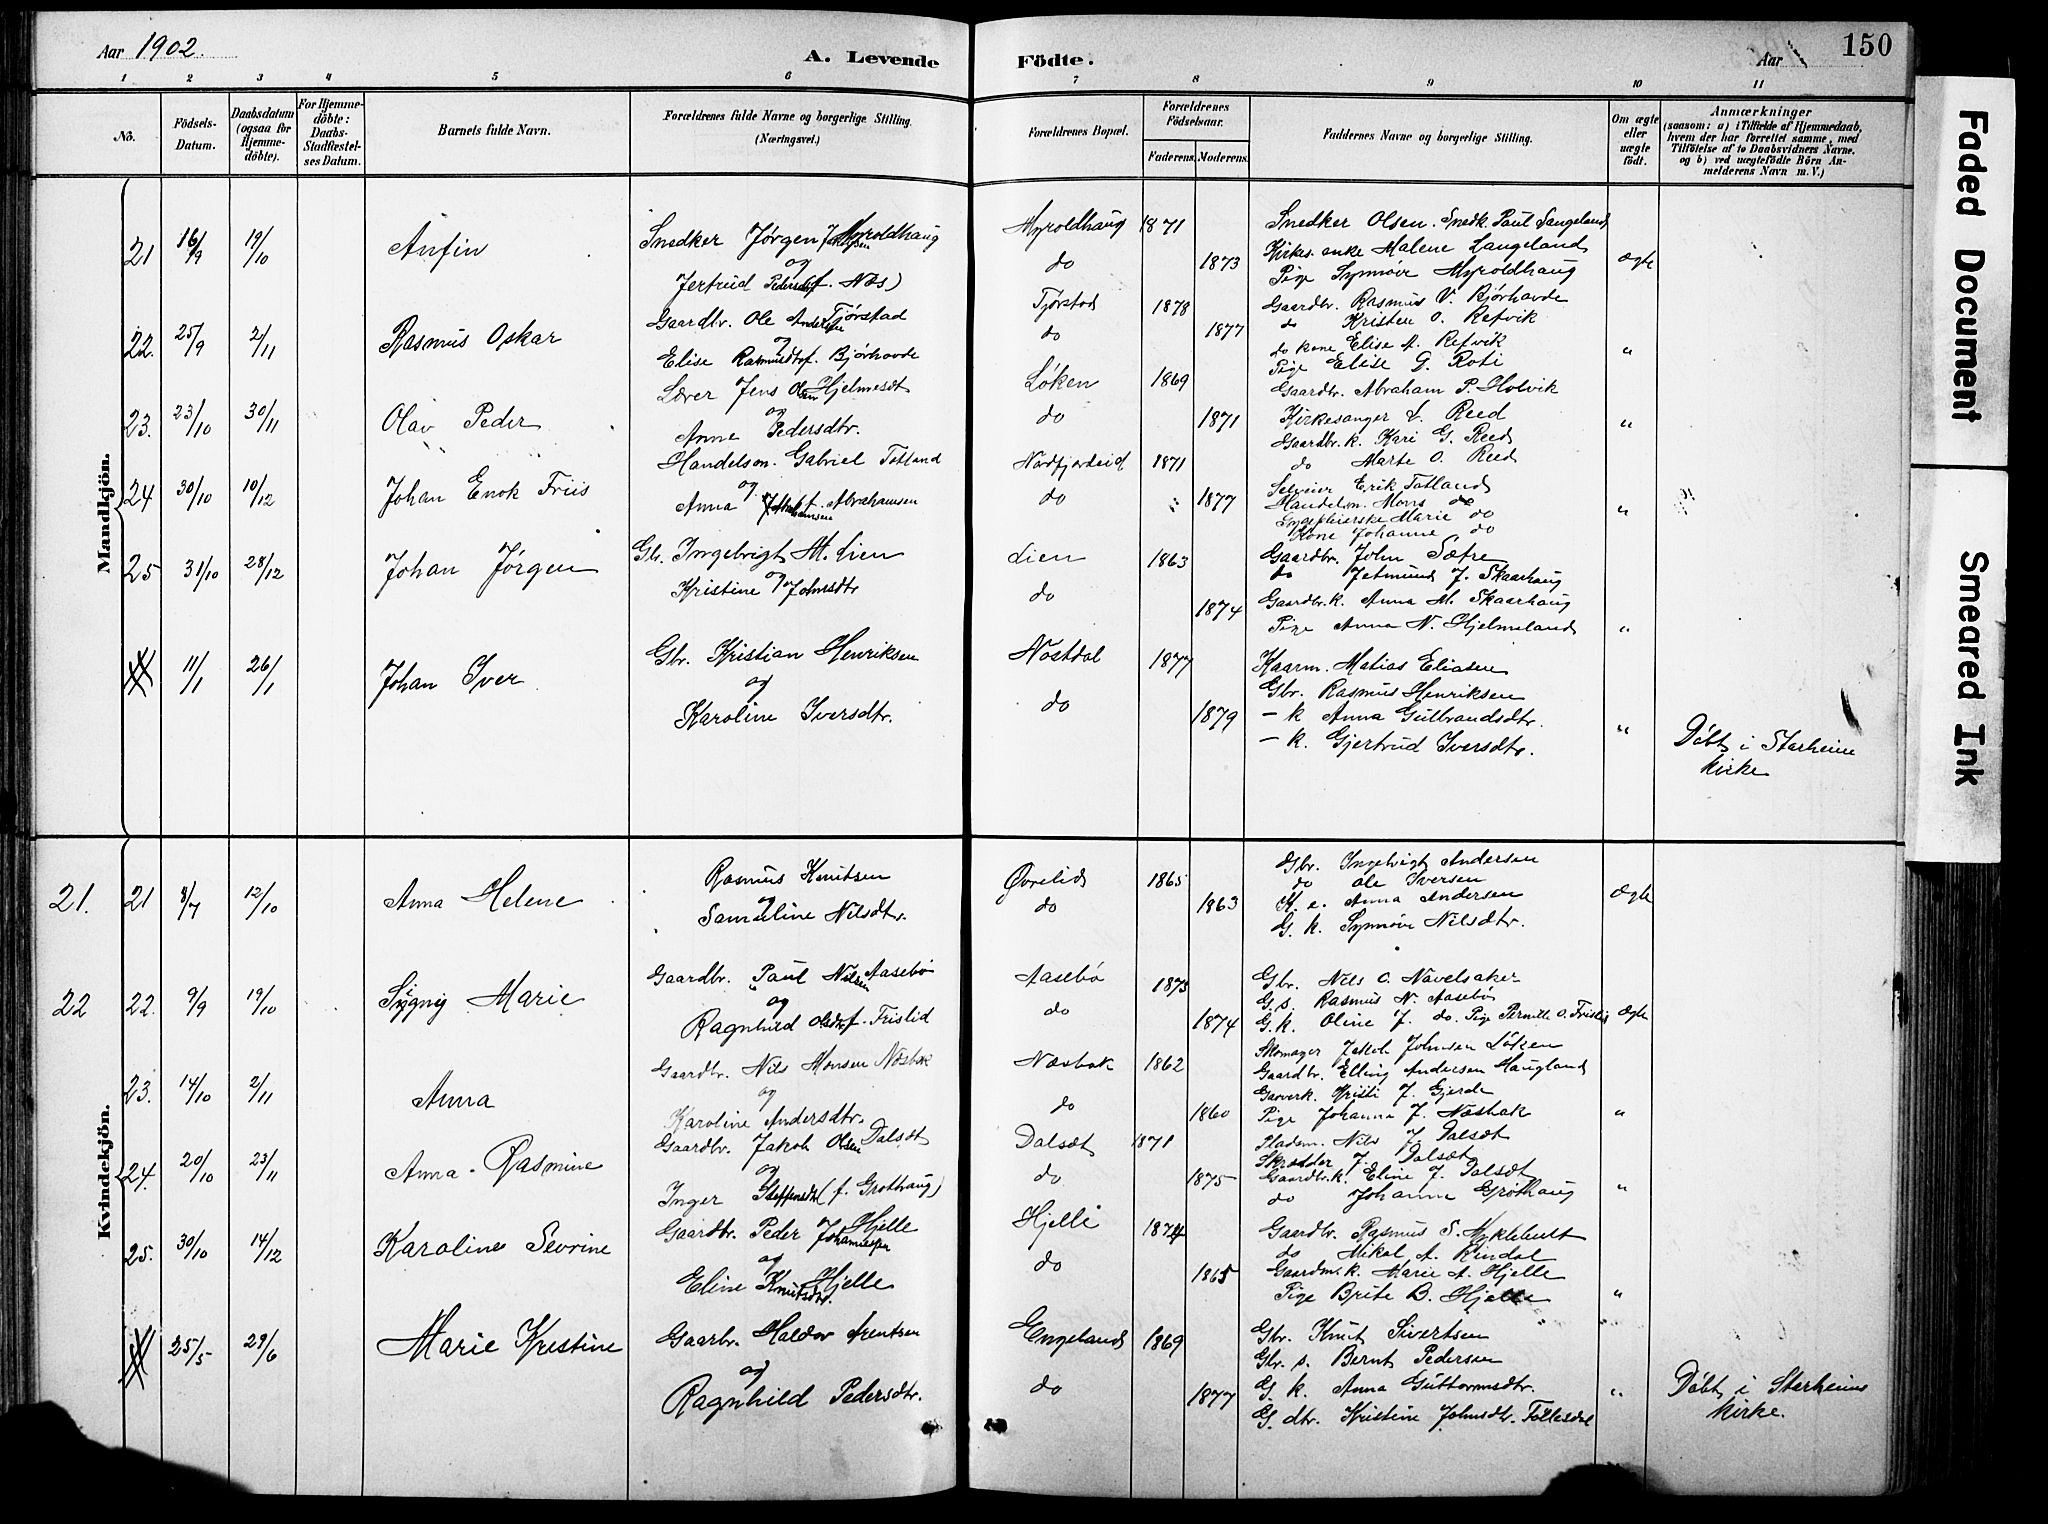 Aar 1902.
A. Levende Födte.
Aar
150
1 2 3 4 5 6 7 8 9 10 11
No.
Födsels-Datum.
Daabsdatum (ogsaa for Hjemme-döbte).
For Hjemme-döbte: Daabs-Stadfæstel-ses Datum.
Barnets fulde Navn.
Forældrenes fulde Navne og borgerlige Stilling. (Næringsvei.)
Forældrenes Bopæl.
Forældrenes Födselsaar.
Faderens. Moderens.
Faddernes Navne og borgerlige Stilling.
Om ægte eller uægte födt.
Anmærkninger
(saasom: a) i Tilfælde af Hjemmedaab, hvem der har forrettet samme, med Tilföielse af to Daabsvidners Navne, og b) ved uægtefödte Börn An-melderens Navn m. V.)
Mandkjön.
21 16/9 19/10 Anfin
Snedker Jørgen Myroldhaug
og
Jertrud Pedersdt f. Næs)
Myroldhaug 1871
do 1873
Snedker Olsen. Snedk. Paul Langeland
Kirkes. enke Malene Langeland
Pige Synnøve Myroldhaug
ægte
22. 25/9 2/11 Rasmus Oskar
Gaardbr. Ole Andersen Tjörstad
og
Elise Rasmusdt f. Bjørhovde
Tjörstad 1878
do 1877
Gaardbr. Rasmus V. Bjørhovde
do Kristen O. Refvik
do kone Elise A. Refvik
Pige Elise G. Roti
"
23. 23/10 30/11 Olav Peder
Lærer Jens Olsen Hjelmesæt
og
Anne Pedersdtr.
Løken 1869
do 1871
Gaardbr. Abraham P. Holvik
Kirkesanger A. Reed
Gaardbr. k. Kari G. Reed
do Marte O. Reed
"
24 30/10 10/12 Johan Enok Friis
Handelsm. Gabriel Totland
og
Anna f. Abrahamsen
Nordfjordeid 1871
do 1877
Selveier Erik Totland
Handelsm. Mons do
Sygepleierske Marie do
Kone Johanne do
"
25 31/10 28/12 Johan Jörgen
Gbr. Ingebrigt M. Lien
og
Kristine Johnsdtr
Lien 1863
do 1874
Gaardbr. John Sætre
do Jetmund J. Skaarhaug
Gaardbr. k. Anna M. Skaarhaug
Pige Anna N. Hjelmeland
"
11/1 26/1 Johan Iver
Gbr. Kristian Henriksen
og
Karoline Iversdtr.
Nöstdal 1877
do 1879
Kaarm. Matias Eliasen
Gbr. Rasmus Henriksen
- k Anna Gulbrandsdtr.
- k. Gjertrud Iversdtr.
"
Döbt i Starheim
Kirke
Kvindekjön.
21. 21 8/7 12/10 Anna Helene
Rasmus Knutsen
og
Samueline Nilsdtr.
Øvrelid 1865
do 1863
Gbr. Ingebrigt Andersen
do Ole Iversen
K. e. Anna Andersen
G. k. Synnøve Nilsdtr.
Ægte
22 22. 9/9 19/10 Signy Marie
Gaardbr. Paul Nilsen Aasebö
og
Ragnhild Olsdt f. Frislid
Aasebö 1873
do 1874
Gbr. Nils O. Navelsaker
G. s. Rasmus N. Aasebö
G. k. Oline J. do. Pige Pernille O. Frislid
Ægte
23. 14/10 2/11 Anna
Gaardbr. Nils Monsen Næsbak
og
Karoline Andersdtr.
Næsbak 1862
do 1860
Skomager Jakob Johnsen Løken
Gaardbr. Elling Andersen Haugland
Garverk. Kristi J. Gjerde
Pige Johanna J. Næsbak
"
24. 20/10 23/11 Anna Rasmine
Gaardbr. Jakob Olsen Dalsæt
og
Inger Steffensdt (f. Grothaug)
Dalsæt 1871
do 1875
Pladsm. Nils J. Dalsæt
Skrædder J. Dalsæt
Gaardbr. k. Eline J. Dalsæt
do Johanne Grothaug
"
25. 30/10 14/12 Karoline Sevrine
Gaardbr. Peder Johannesen Hjelle
og
Eline Knutsdtr. Hjelle
Hjelle 1874
do 1865
Gaardbr. Rasmus S. Myklebust
do Mikal A. Rindal
Gaardm. k. Marie A. Hjelle
Pige Brite B. Hjelle
"
25/5 29/6 Marie Kristine
Gaarbr. Haldor Arentsen
og
Ragnhild Pedersdtr.
Engeland 1869
do 1877
Gbr. Knut Sivertsen
Gbr. s. Bernt Pedersen
G. k. Anna Guttormsdtr.
G. dtr. Kristine Johnsdtr.
"
Döbt i Starheim
Kirke.
Faded Document
Smeared Ink